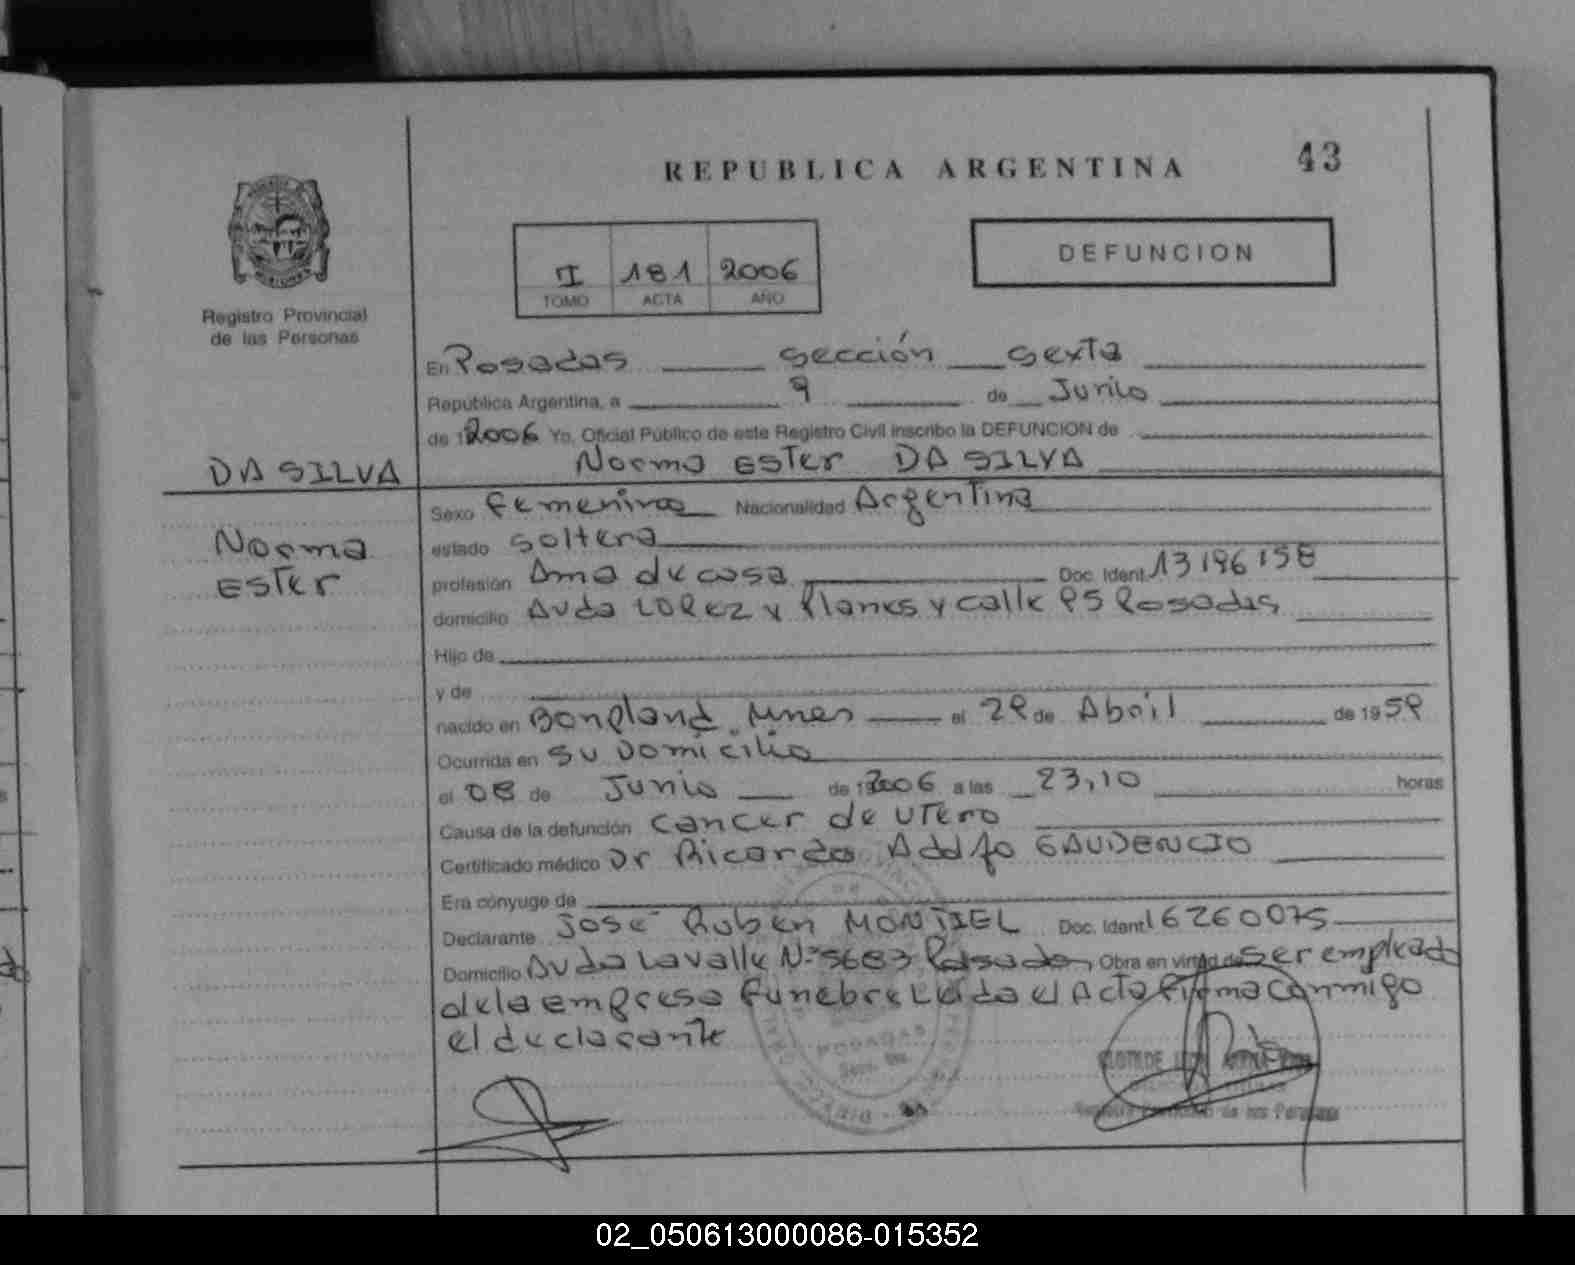 REPUBLICA ARGENTINA 43
DEFUNCION
I 181 2006
TOMO ACTA AÑO
Registro Provincial
de las Personas
En Posadas sección sexta
Republica Argentina, a 9 de Junio
de 12006 Yo, Oficial Público de este Registro Civil inscribo la DEFUNCION de
DA SILVA Norma ESTer DA SILVA
Sexo femenino Nacionalidad Argentina
Norma
ESTer
estado soltera
profesión Ama de casa Doc. Ident. 13196158
domicilio Avda LOPEZ y Planes y calle 95 Posadas
Hijo de
y de
nacido en Bonpland Mnes el 29 de Abril de 1959
Ocurrida en su Domicilio
el 08 de Junio de 12006 a las 23,10 horas
Causa de la defunción cancer de utero
Certificado médico Dr Ricardo Adolfo GAUDENCIO
Era cónyuge de
Declarante José Ruben MONTIEL Doc. Ident. 16260075
Domicilio Avda Lavalle Nº 5683 Posadas, Obra en virtud de ser empleado
de la empresa funebre Leida el Acta firma conmigo
el declarante
POSADAS
CLOTILDE
Registro Provincial de las Personas
02_050613000086-015352